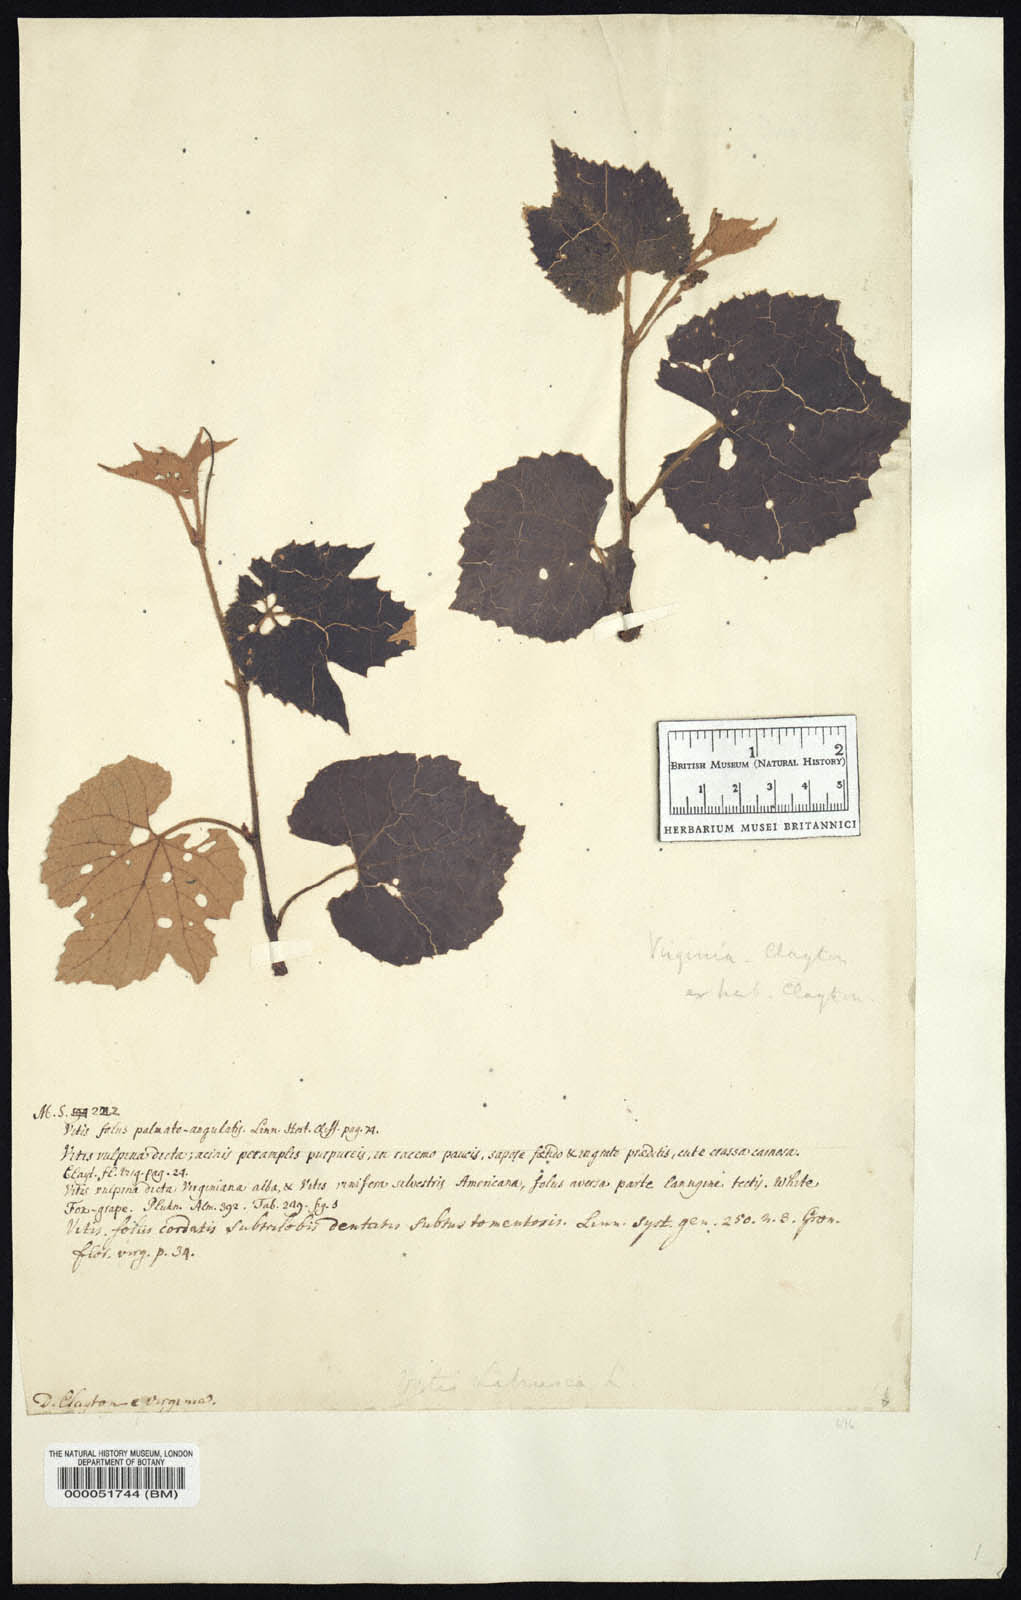 1 2
British Museum (Natural History)
1 2 3 4 5
Herbarium Musei Britannici
Virginia - Clayton
ex herb. Clayton.
M. S. 222
Vitis foliis palmato-angulatis. Linn. Hort. Cliff. pag. 74.
Vitis vulpina dicta; acinis peramplis purpureis, in racemo paucis, sapore fœtido & ingrato præditis, cute crassa carnosa.
Clayt. fl. Virg. pag. 24.
Vitis vulpina dicta Virginiana alba, & Vitis vinifera silvestris Americana, foliis aversa parte lanugine tectis. White
Fox-grape. Plukn. Alm. 392. Tab. 249. fig. 1
Vitis foliis cordatis subtrilobis dentatis subtus tomentosis. Linn. syst. gen. 250. n. 3. Gron.
flor. virg. p. 34.
Vitis Labrusca L.
D. Clayton e Virginia.
THE NATURAL HISTORY MUSEUM, LONDON
DEPARTMENT OF BOTANY
000051744 (BM)
1